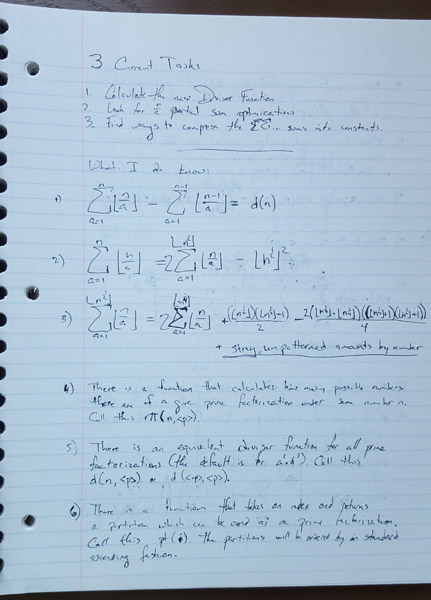 3 Current Tasks
1. Calculate the new Divisor Function
2. Look for n/a partial sum optimizations
3. Find ways to compress the ΣΣ... sums into constants.
What I do know:
1) Σ_{a=1}^{n} ⌊n/a⌋ - Σ_{a=1}^{n-1} ⌊(n-1)/a⌋ = d(n)
2) Σ_{a=1}^{n} ⌊n/a⌋ = 2 Σ_{a=1}^{⌊n^½⌋} ⌊n/a⌋ - ⌊n^½⌋²
3) Σ_{a=1}^{⌊n^½⌋} ⌊n/a⌋ = 2 Σ_{a=1} ⌊n/a⌋
+ stray, unpatterned amounts by number
4) There is a function that calculates how many possible numbers
there are of a give prime factorization under some number n.
Call this π(n,<p>).
5) There is an equivalent divisor function for all prime
factorizations (the default is for a'b') Call this
d(n,<p>) or d(<p>,<p>)
6) There is a function that takes an index and returns
a partition which can be used as a prime factorization.
Call this pt(i) The partitions will be ordered by in standard
ascending fashion.